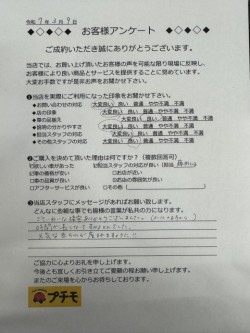 令和 7年2月9日
◆◇◆◇◆ お客様アンケート ◆◇◆◇◆
ご成約いただき誠にありがとうございます。
当店では、お買い上げ頂いたお客様の声を可能な限り現場に反映し、
お客様により良い商品とサービスを提供することに努めています。
大変お手数ですが是非お声をお聞かせ下さい。
❶当店を実際にご利用になった印象をお聞かせ下さい。
◆お問い合わせの対応 大変良い 良い 普通 やや不満 不満
◆店の印象 大変良い 良い 普通 やや不満 不満
◆車の品揃え 大変良い 良い 普通 やや不満 不満
◆説明の分かりやすさ 大変良い 良い 普通 やや不満 不満
◆担当スタッフの対応 大変良い 良い 普通 やや不満 不満
◆他のスタッフの対応 大変良い 良い 普通 やや不満 不満
❷ご購入を決めて頂いた理由は何ですか？(複数回答可)
□欲しい車があった □担当スタッフの対応が良い(担当
□車の価格が良い □お店が近い
□車の状態が良い □お店の雰囲気が良い
□アフターサービスが良い □その他(
❸当店スタッフにメッセージがあればお願い致します。
どんなに些細な事でも皆様の言葉が私共の力になります。
ご協力に心よりお礼を申し上げます。
今後とも宜しくお引き立てご愛顧の程お願い申し上げます。
またのご来場を心からお待ちしております。
プチモ